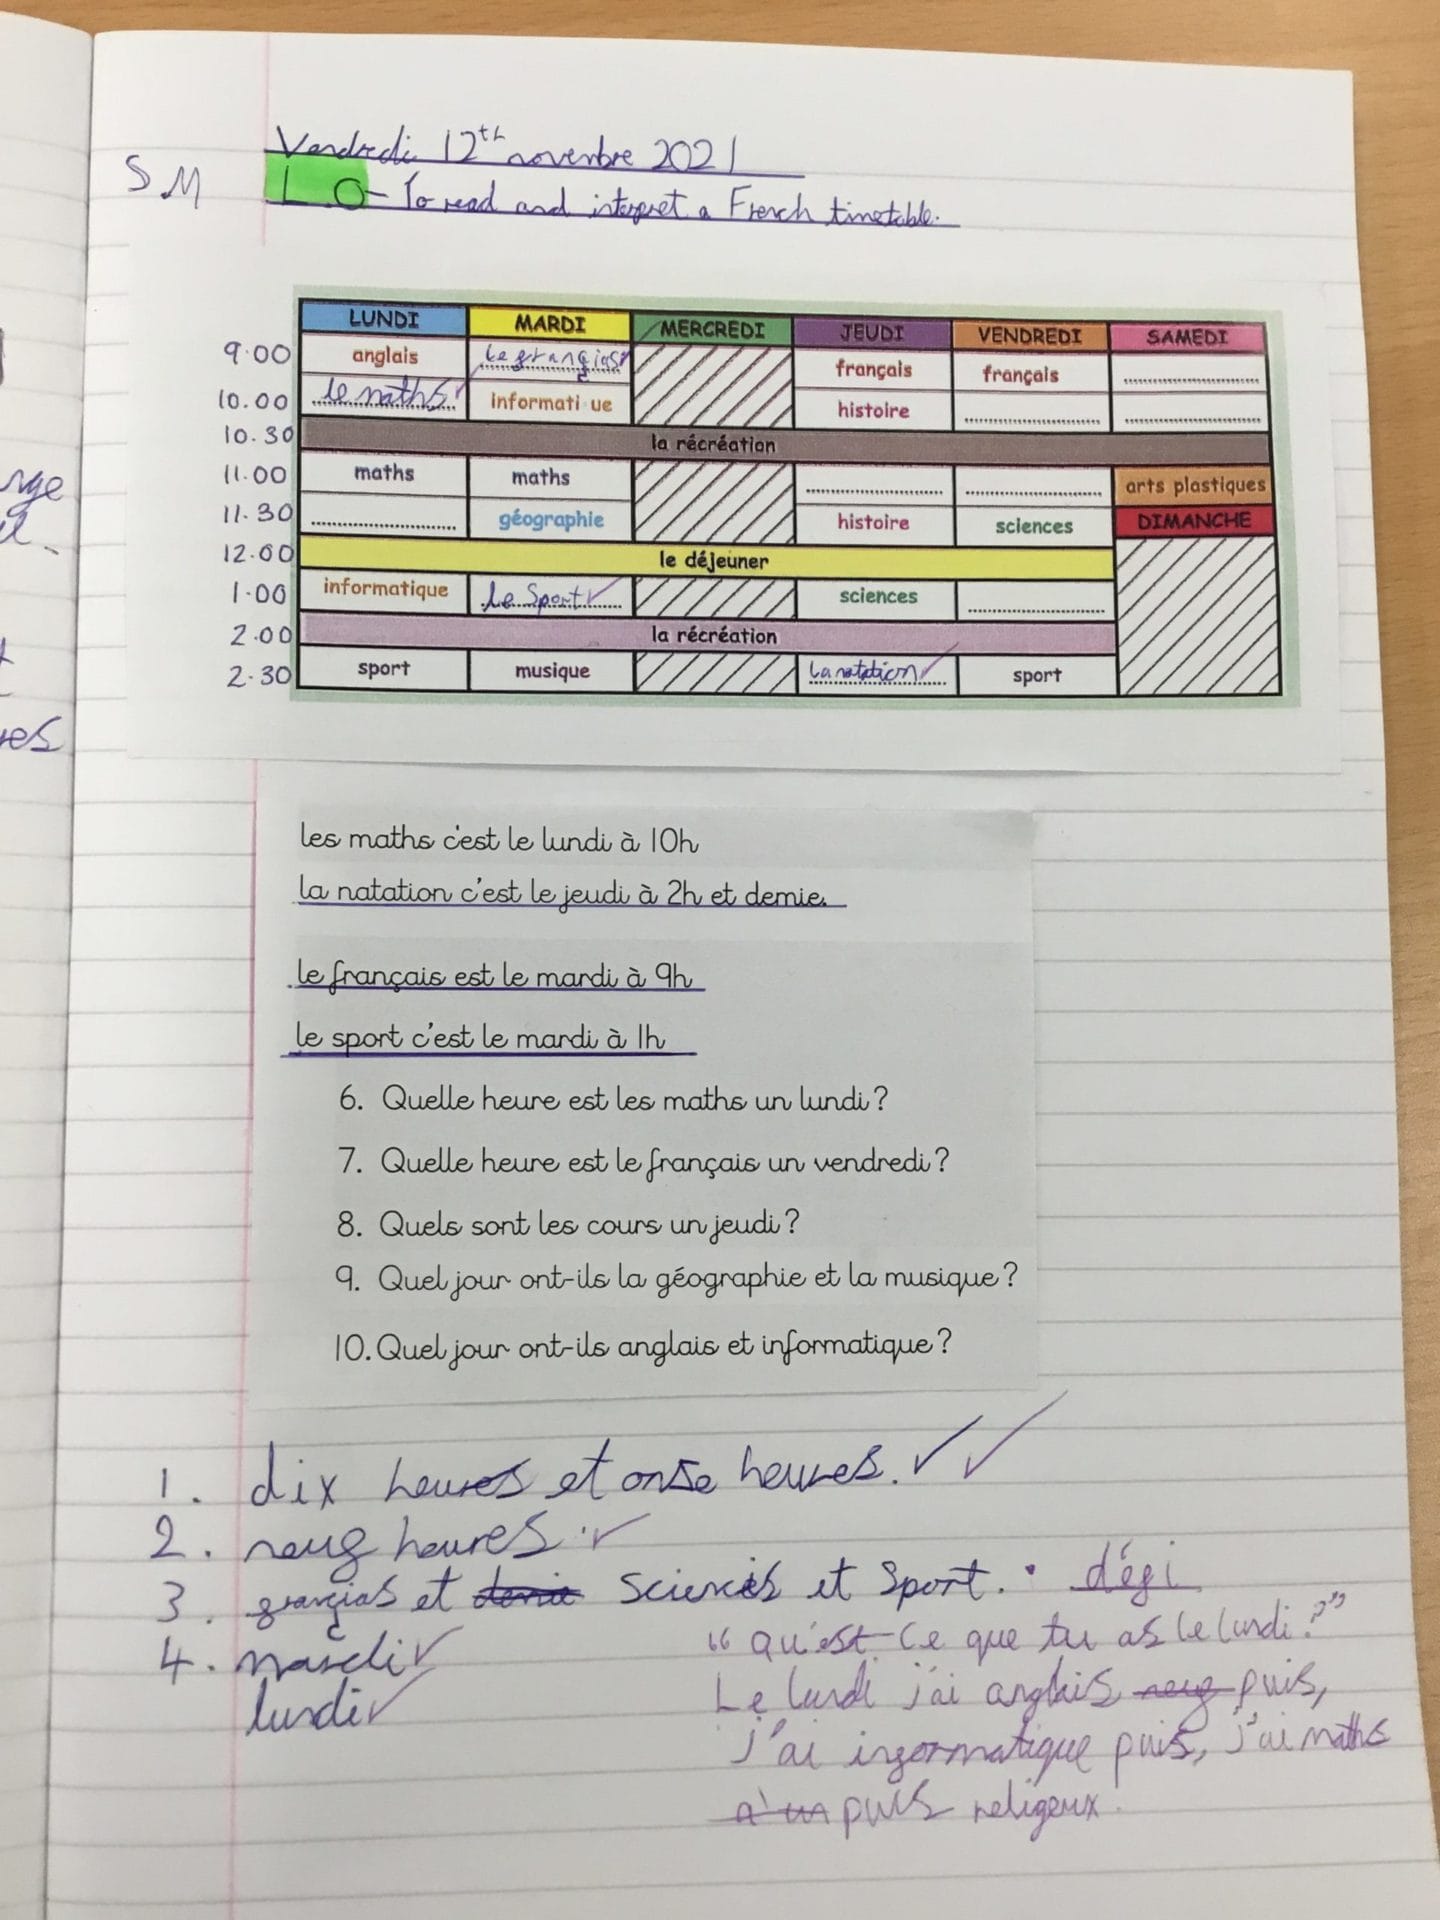 Vendredi 12th novembre 2021
S M
L O - To read and interpret a French timetable.
LUNDI MARDI MERCREDI JEUDI VENDREDI SAMEDI
9.00 anglais Le français français français
10.00 le maths informati ue histoire
10.30 la récréation
11.00 maths maths arts plastiques
11.30 géographie histoire sciences DIMANCHE
12.00 le déjeuner
1.00 informatique Le Sport sciences
2.00 la récréation
2.30 sport musique La natation sport
les maths c'est le lundi à 10h
la natation c'est le jeudi à 2h et demie.
le français est le mardi à 9h
le sport c'est le mardi à 1h
6. Quelle heure est les maths un lundi?
7. Quelle heure est le français un vendredi?
8. Quels sont les cours un jeudi?
9. Quel jour ont-ils la géographie et la musique?
10. Quel jour ont-ils anglais et informatique?
1. dix heures et onse heures.
2. neuf heures.
3. françias et Sciences et Sport. défi
4. mardi
"qu'est-ce que tu as le lundi?"
lundi
Le lundi j'ai anglais puis,
j'ai informatique puis, j'ai maths
puis religeux.